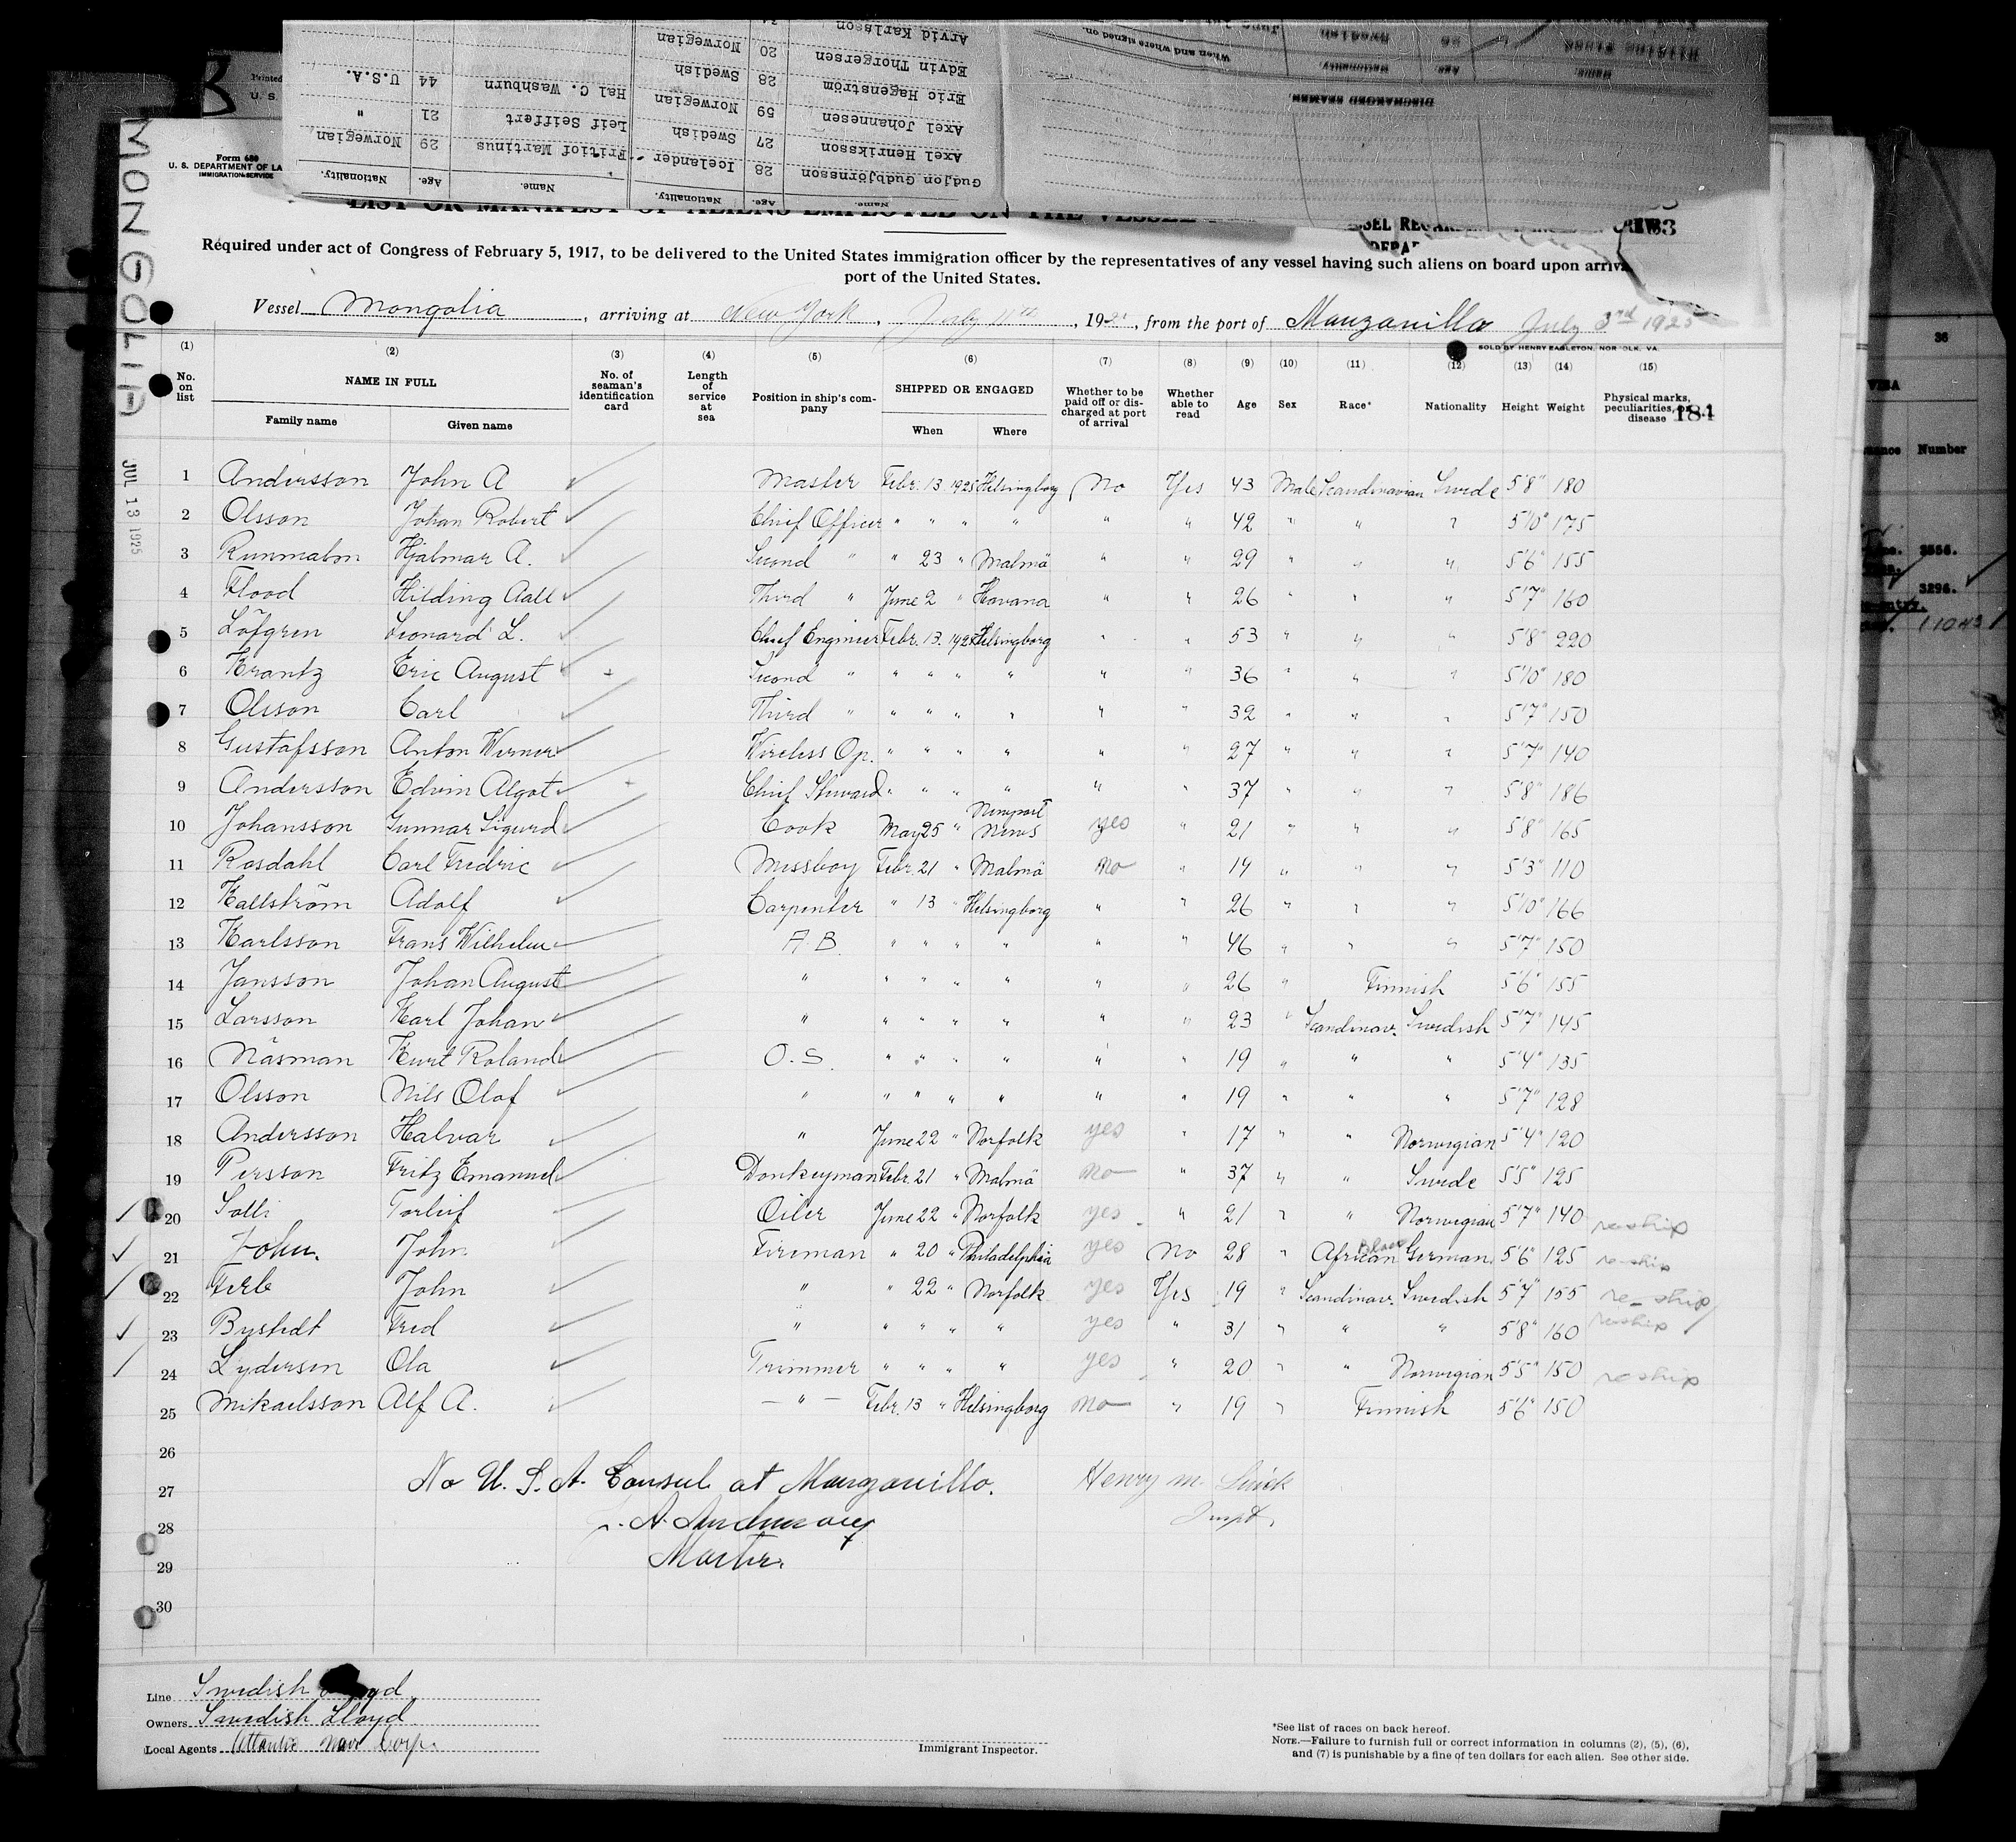 Gudjon Gudbjörnsson 28 Icelander
Axel Henriksson 27 Swedish
Axel Johannesen 59 Norwegian
Eric Hagenström 28 Swedish
Edvin Thorgersen 20 Norwegian
Arvid Karlsson
Name. Age. Nationality.
Fritiof Martinus 29 Norwegian
Leif Seiffert 21 "
Hal C. Washburn 44 U.S.A.
DISCHARGED SEAMEN
Name. Age. Nationality. When and where signed on.
B
Printed
U. S.
MONGOLIA
JUL 13 1925
Form 680
U. S. DEPARTMENT OF LA
IMMIGRATION SERVICE
LIST OR MANIFEST OF ALIENS EMPLOYED ON THE VESSEL
Required under act of Congress of February 5, 1917, to be delivered to the United States immigration officer by the representatives of any vessel having such aliens on board upon arriva
port of the United States.
Vessel Mongolia, arriving at New York, July 11th, 19, from the port of Manzanillo July 3rd 1925
SOLD BY HENRY EAGLETON, NORFOLK, VA.
(1) (2) (3) (4) (5) (6) (7) (8) (9) (10) (11) (12) (13) (14) (15)
No. on list NAME IN FULL Family name Given name No. of seaman's identification card Length of service at sea Position in ship's company SHIPPED OR ENGAGED When Where Whether to be paid off or discharged at port of arrival Whether able to read Age Sex Race* Nationality Height Weight Physical marks, peculiarities, or disease
181
1 Andersson John A Master Febr. 13 1925 Helsingborg No Yes 43 Male Scandinavian Swede 5'8" 180
2 Olsson Johan Robert Chief Officer " " " " " " 42 " " " 5'10" 175
3 Runmalm Hjalmar A. Second " " 23 " Malmö " " 29 " " " 5'6" 155
4 Flood Hilding Aall Third " June 2 " Havana " " 26 " " " 5'7" 160
5 Löfgren Leonard L. Chief Engineer Febr. 13. 1925 Helsingborg " " 53 " " " 5'8" 220
6 Krantz Eric August Second " " " " " " " 36 " " " 5'10" 180
7 Olsson Carl Third " " " " " " " 32 " " " 5'7" 150
8 Gustafsson Anton Werner Wireless Op. " " " " " " 27 " " " 5'7" 140
9 Andersson Edvin Algot Chief Steward " " " " " " 37 " " " 5'8" 186
10 Johansson Gunnar Sigurd Cook May 25 " Newport News yes " 21 " " " 5'8" 165
11 Rosdahl Carl Fredric Messboy Febr. 21 " Malmö no " 19 " " " 5'3" 110
12 Kallström Adolf Carpenter " 13 " Helsingborg " " 26 " " " 5'10" 166
13 Karlsson Frans Wilhelm A B " " " " " " 46 " " " 5'7" 150
14 Jansson Johan August " " " " " " " 26 " Finnish 5'6" 155
15 Larsson Karl Johan " " " " " " " 23 " Scandinav. Swedish 5'7" 145
16 Näsman Kurt Roland O. S. " " " " " " 19 " " " 5'4" 135
17 Olsson Nils Olof " " " " " " " 19 " " " 5'7" 128
18 Andersson Halvar " June 22 " Norfolk yes " 17 " " Norwegian 5'4" 120
19 Persson Fritz Emanuel Donkeyman Febr. 21 " Malmö no " 37 " " Swede 5'5" 125
20 Solli Torleif Oiler June 22 " Norfolk yes " 21 " " Norwegian 5'7" 140 reship
21 John. John Fireman " 20 " Philadelphia yes No 28 " African Black German 5'6" 125 reship
22 John " " 22 " Norfolk yes Yes 19 " Scandinav. Swedish 5'7" 155 re-ship
23 Bystedt Fred " " " " " yes " 31 " " " 5'8" 160 reship
24 Lydersen Ola Trimmer " " " " yes " 20 " " Norwegian 5'5" 150 reship
25 Mikaelsson Alf A. — " — Febr. 13 " Helsingborg no " 19 " Finnish 5'6" 150
26
27 No U. S. A. Consul at Manzanillo. Henry M.
28 Inspt.
29 Master.
30
Line Swedish
Owners Swedish Lloyd
Local Agents Atlantic Nav Corp.
Immigrant Inspector.
*See list of races on back hereof.
NOTE.—Failure to furnish full or correct information in columns (2), (5), (6),
and (7) is punishable by a fine of ten dollars for each alien. See other side.
36
VISA
Number
3556.
3296.
11043